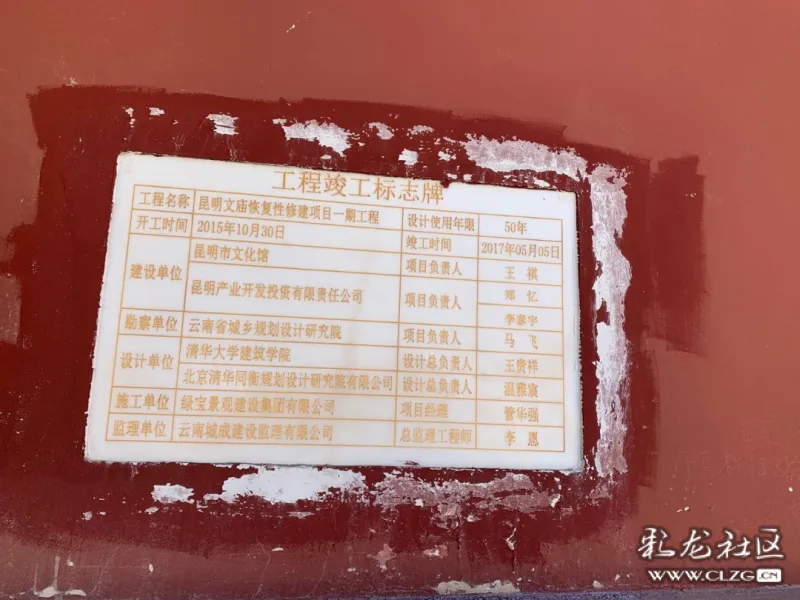 工程竣工标志牌
工程名称 昆明文庙恢复性修建项目一期工程 设计使用年限 50年
开工时间 2015年10月30日 竣工时间 2017年05月05日
建设单位 昆明市文化馆 项目负责人 王祺
昆明产业开发投资有限责任公司 项目负责人 郑忆
李泰宇
勘察单位 云南省城乡规划设计研究院 项目负责人 马飞
设计单位 清华大学建筑学院 设计总负责人 王贵祥
北京清华同衡规划设计研究院有限公司 设计总负责人 温雅宸
施工单位 绿宝景观建设集团有限公司 项目经理 管华强
监理单位 云南城成建设监理有限公司 总监理工程师 李恩
彩龙社区
WWW.CLZG.CN